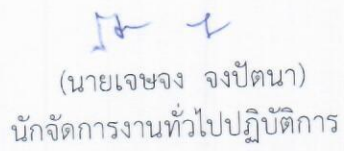 (นายเจษจง จงปัตนา)
นักจัดการงานทั่วไปปฏิบัติการ